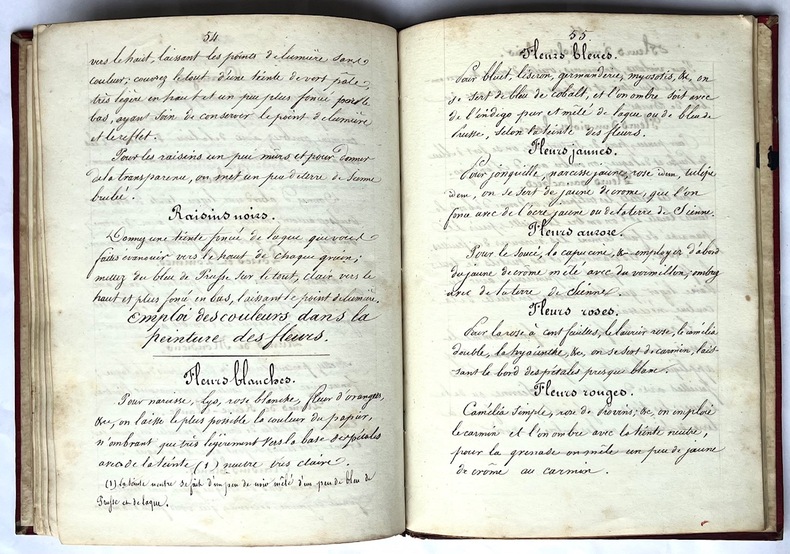 54
vers le haut, laissant les points de lumière sans
couleur, couvrez le tout d'une teinte de vert pâle,
très légère en haut et un peu plus foncée par le
bas, ayant soin de conserver le point de lumière
et le reflet.
Pour les raisins un peu murs et pour donner
de la transparence, on met un peu de terre de Sienne
brulée.
Raisins noirs.
Donnez une teinte foncée de laque que vous
faites evanouir vers le haut de chaque grain;
mettez du bleu de Prusse sur le tout, clair vers le
haut et plus foncé en bas, laissant le point de lumière.
Emploi des couleurs dans la
peinture des fleurs.
Fleurs blanches.
Pour narcisse, lys, rose blanche, fleur d'oranger,
&c, on laisse le plus possible la couleur du papier,
n'ombrant que très légèrement vers la base des pétales
avec de la teinte (1) neutre très claire.
(1) La teinte neutre se fait d'un peu de noir mêlé d'un peu de bleu de
Prusse et de laque.
55
Fleurs bleues.
Pour bluet, liseron, germandrée, myosotis, &c, on
se sert de bleu de cobalt, et l'on ombre soit avec
de l'indigo pur et mêlé de laque ou de bleu de
Prusse, selon la teinte des fleurs.
Fleurs jaunes.
Pour jonquille, narcisse jaune, rose idem, tulipe
idem, on se sert de jaune de crome, que l'on
fonce avec de l'ocre jaune ou de la terre de Sienne.
Fleurs aurore.
Pour le souci, la capucine, &c employez d'abord
du jaune de crôme mêlé avec du vermillon, ombrez
avec de la terre de Sienne.
Fleurs roses.
Pour la rose à cent feuilles, le laurier rose, le camélia
double, la hyacinthe, &c, on se sert de carmin, lais-
sant le bord des pétales presque blanc.
Fleurs rouges.
Camélia simple, rose de Provins, &c, on emploie
le carmin et l'on ombre avec la teinte neutre,
pour la grenade on mêle un peu de jaune
de crôme au carmin.